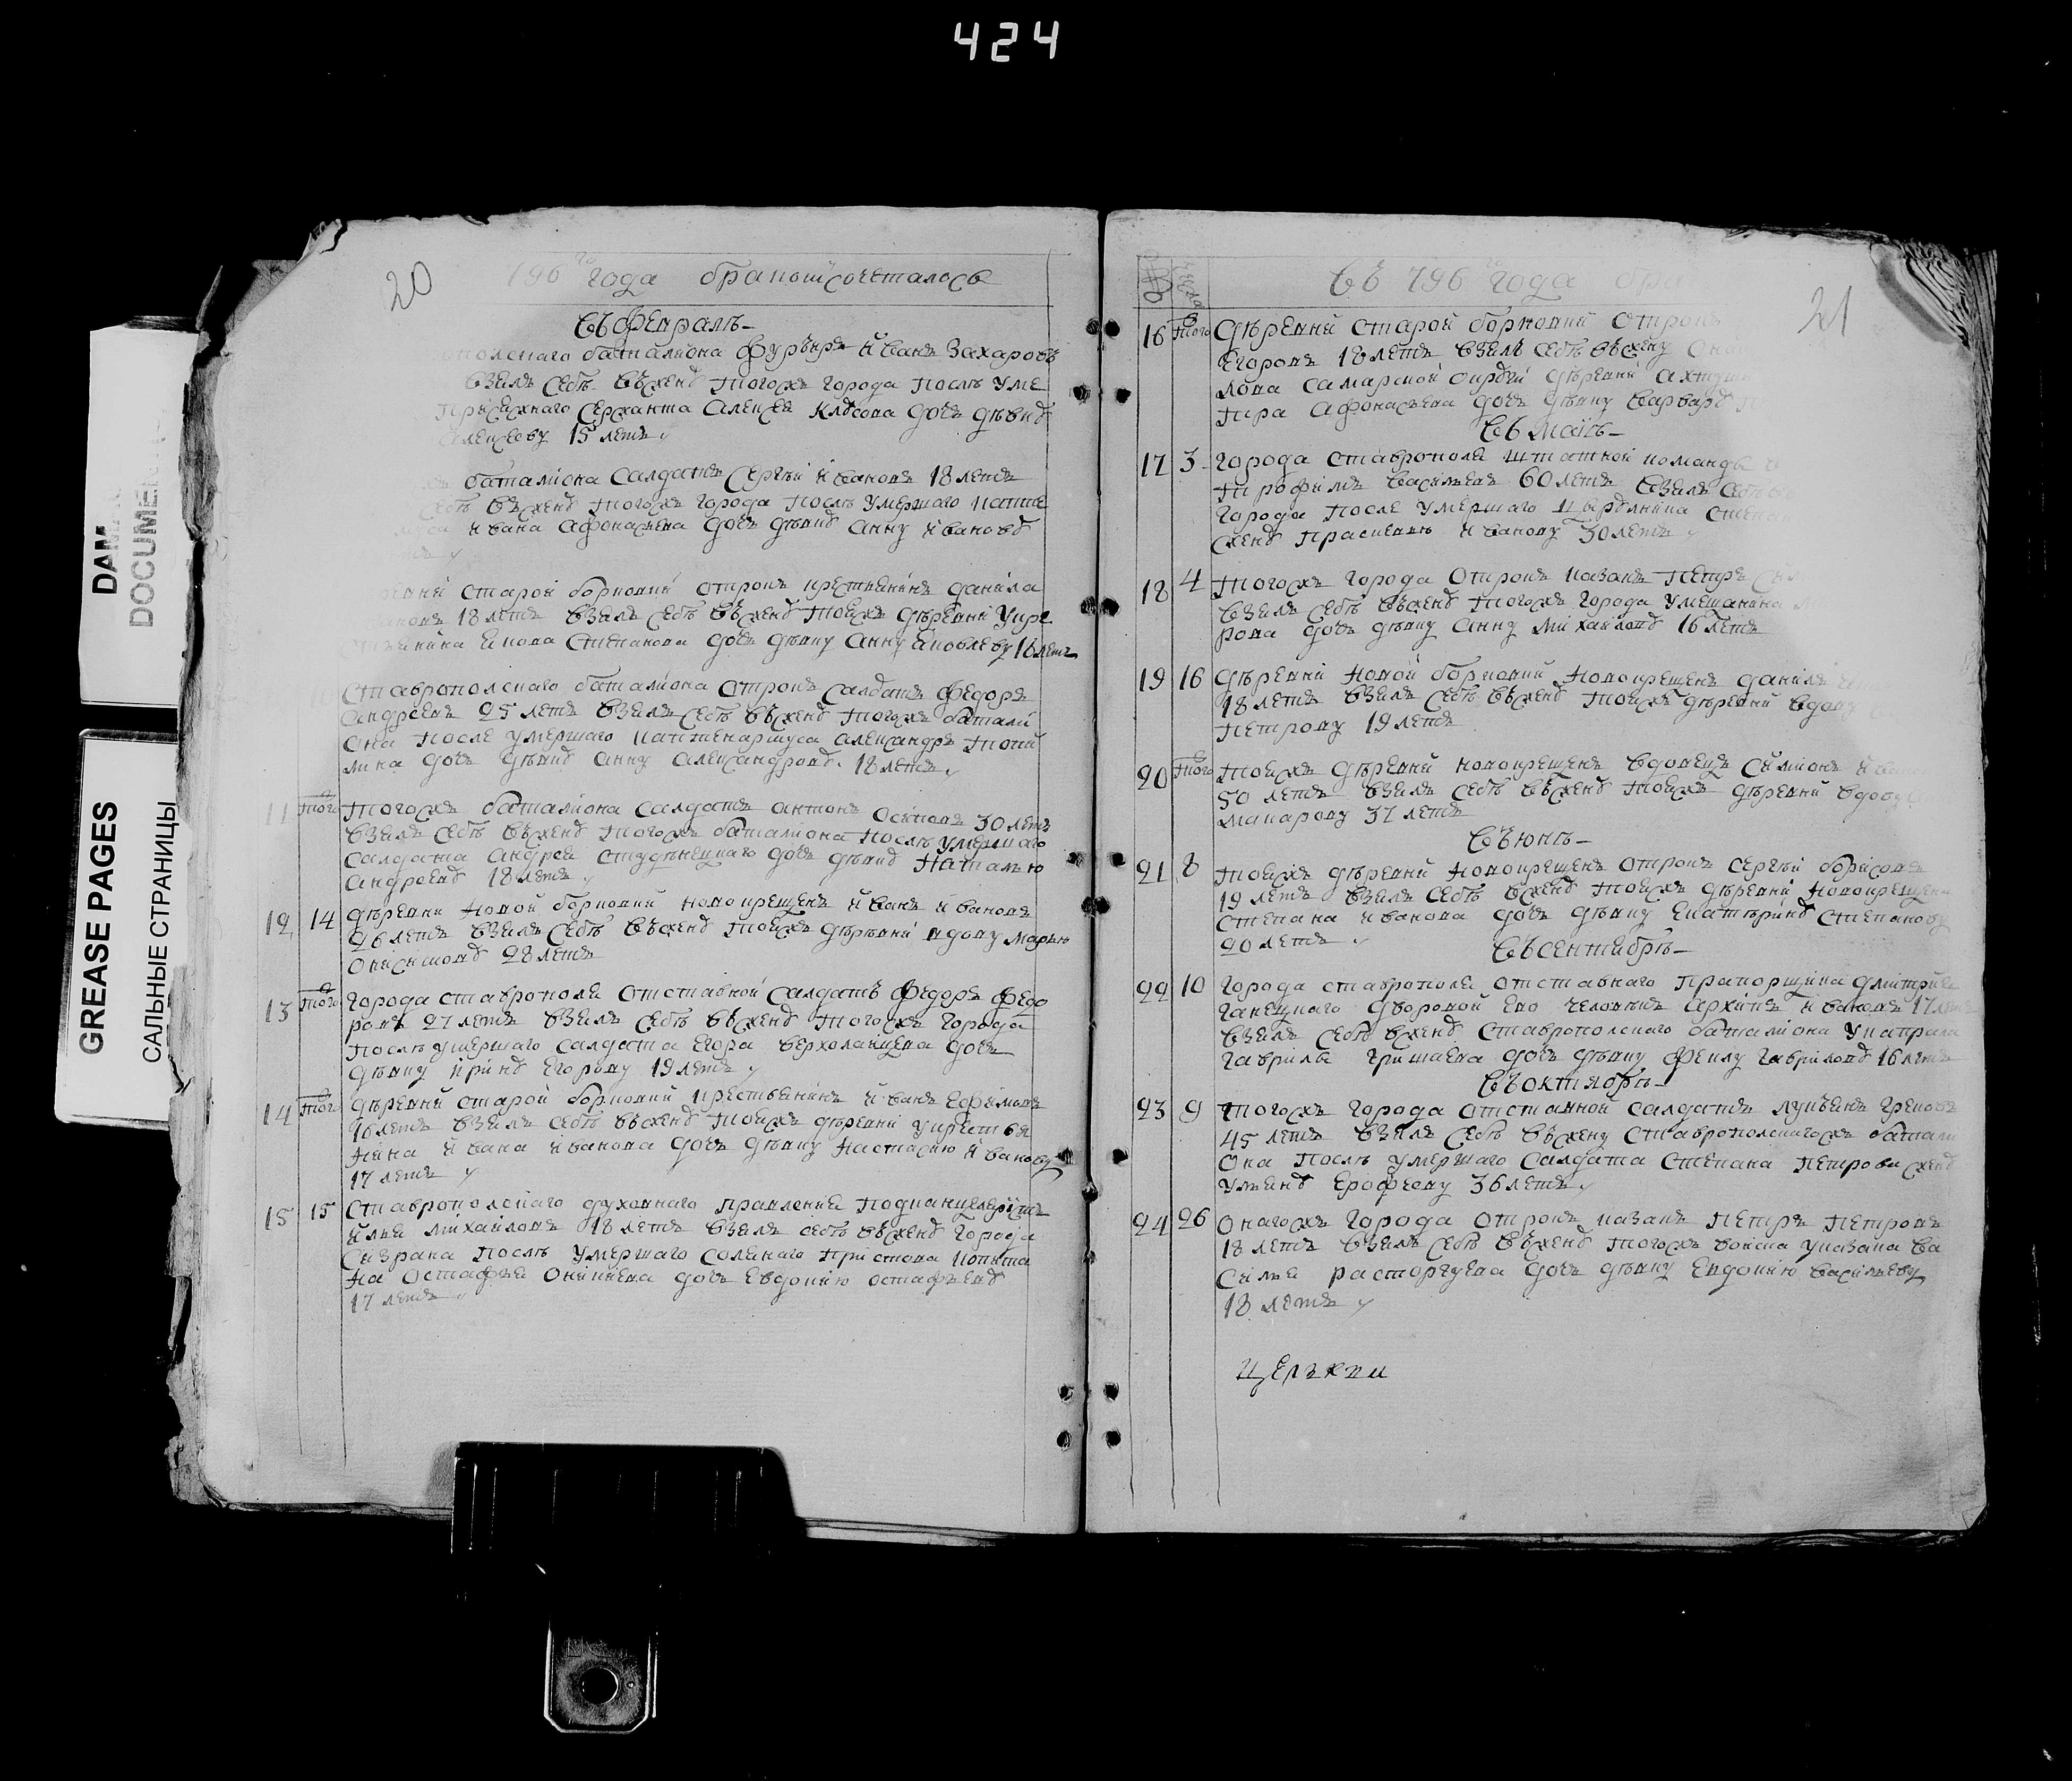 424
DAM
DOCUMEN
GREASE PAGES
САЛЬНЫЕ СТРАНИЦЫ
20
796 го года бракомъсочеталось
въ февралѣ
баталиона фурьеръ иванъ Захаровъ
взялъ себѣ въжену тогожъ города послѣ уме
сержанта алексея дочь девку
алексеву 15 летъ
баталиона салдатъ сергѣй ивановъ 18 летъ
себѣ въжену тогожъ города послѣ умершаго капте
ивана афонасьева дочь дѣвку анну иванову
старой борковки отрокъ крестьянинъ данила
18 летъ взялъ себѣ въжену тоежъ дѣревни укре
стьянина якова степанова дочь дѣвку анну яковлеву 16 летъ
10
ставропольскаго баталиона отрокъ салдатъ федоръ
андреевъ 25 летъ взялъ себѣ въжену тогожъ батали
она после умершаго каптенармуса александръ
мина дочь дѣвку анну александрову 18 летъ
11 того тогожъ баталиона салдатъ антонъ осиповъ 30 летъ
взялъ себѣ въжену тогожъ баталиона послѣ умершаго
салдата андрея студенецкаго дочь дѣвку наталью
андрееву 18 летъ
12 14 дѣревни новой борковки новокрещенъ иванъ ивановъ
26 летъ взялъ себѣ въжену тоежъ дѣревни вдову марью
онисимову 28 летъ
13 того города ставрополя отставной салдатъ федоръ федо
ровъ 27 летъ взялъ себѣ въжену тогожъ города
послѣ умершаго салдата егора верхоланцева дочь
дѣвку ирину егорову 19 летъ
14 того дѣревни старой борковки крестьянинъ иванъ ефимовъ
16 летъ взялъ себѣ въжену тоежъ дѣревни укрестья
нина ивана иванова дочь дѣвку настасью иванову
17 летъ
15 15 ставропольскаго духовнаго правления подканцеляристъ
илья михайловъ 18 летъ взялъ себѣ въжену города
сызрана послѣ умершаго солянаго пристава капита
на остафья дочь евдокию остафьеву
17 летъ
въ 796 года бра
21
16 того дѣревни старой борковки отрокъ
егоровъ 18 летъ взялъ себѣ въжену
лова самарской округи дѣревни
тра афонасьева дочь дѣвку варвару
въ маiѣ
17 3 города ставрополя штатной команды
трофимъ васильевъ 60 летъ взялъ себѣ
города после умершаго
жену прасковью иванову 30 летъ
18 4 тогожъ города отрокъ казакъ петръ
взялъ себѣ въжену тогожъ города умещанина
рова дочь дѣвку анну михайлову 16 летъ
19 16 дѣревни новой борковки новокрещенъ данила
18 летъ взялъ себѣ въжену тоежъ дѣревни вдову
петрову 19 летъ
20 того тоежъ дѣревни новокрещенъ вдовецъ симионъ
50 летъ взялъ себѣ въжену тоежъ дѣревни вдову
макарову 37 летъ
въ юнѣ
21 8 тоежъ дѣревни новокрещенъ отрокъ сергѣй борисовъ
19 летъ взялъ себѣ вжену тоежъ дѣревни новокрещена
степана иванова дочь дѣвку екатерину степанову
20 летъ
въ сентябрѣ
22 10 города ставрополя отставнаго прапорщика дмитрия
дворовой ево человѣкъ архипъ ивановъ 17 летъ
взялъ себѣ вжену ставропольскаго баталиона укапрала
гаврилы гришаева дочь дѣвку феклу гаврилову 16 летъ
въ октябрѣ
23 9 тогожъ города отставной салдатъ лукьянъ грековъ
45 летъ взялъ себѣ въжену ставропольскагожъ батали
она послѣ умершаго салдата степана петрова жену
ульяну ерофѣеву 36 летъ
24 26 онагожъ города отрокъ казакъ петръ петровъ
18 летъ взялъ себѣ въжену тогожъ войска указака ва
силья расторгуева дочь дѣвку евдокию васильеву
18 летъ